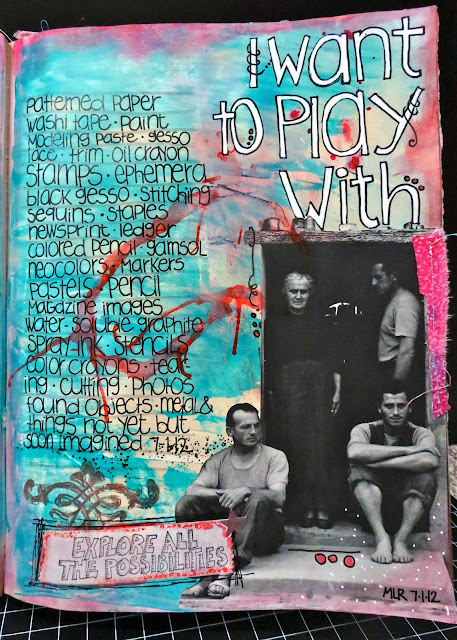 I want
to Play
With
patterned paper
washi tape · paint
modeling paste · gesso
lace · trim · oil crayon
stamps · ephemera
black gesso · stitching
sequins · staples
newsprint · ledger
colored pencil · gamsol
neocolors · markers
pastels · pencil
magazine images
water-soluble graphite
spray-ink · stencils
color crayons · tear
ing · cutting · photos
found objects · metal &
things not yet but
soon imagined 7·1·12
EXPLORE ALL
THE POSSIBILITIES
MLR 7·1·12